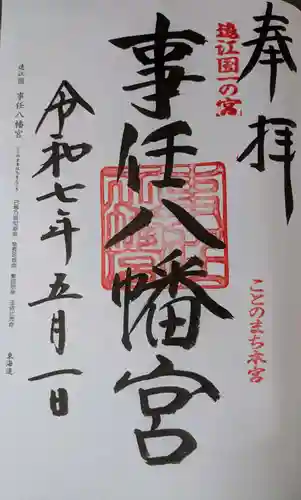 奉拝
遠江国一の宮
ことのまち本宮
事任八幡宮
令和七年五月一日
遠江國 事任八幡宮
東海道